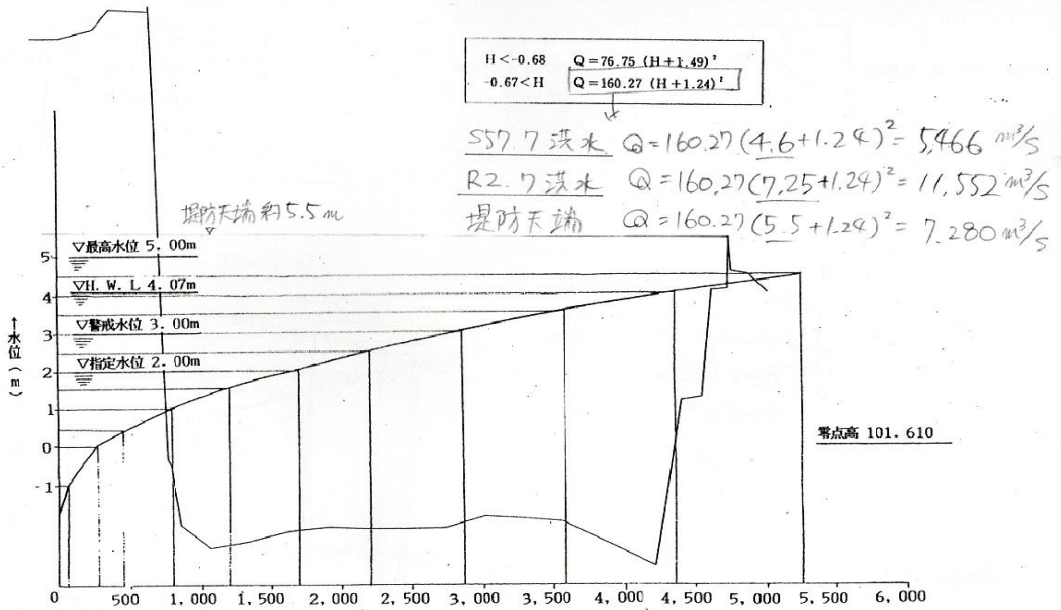 H<-0.68 Q=76.75 (H+1.49)²
-0.67<H Q=160.27 (H+1.24)²
S57.7洪水 Q=160.27(4.6+1.24)²= 5,466 m³/s
R2.7洪水 Q=160.27(7.25+1.24)²= 11,552 m³/s
堤防天端 Q=160.27(5.5+1.24)²= 7.280 m³/s
堤防天端約5.5m
▽最高水位 5.00m
▽H.W.L 4.07m
▽警戒水位 3.00m
▽指定水位 2.00m
↑水位(m)
5
4
3
2
1
0
-1
零点高 101.610
0 500 1,000 1,500 2,000 2,500 3,000 3,500 4,000 4,500 5,000 5,500 6,000